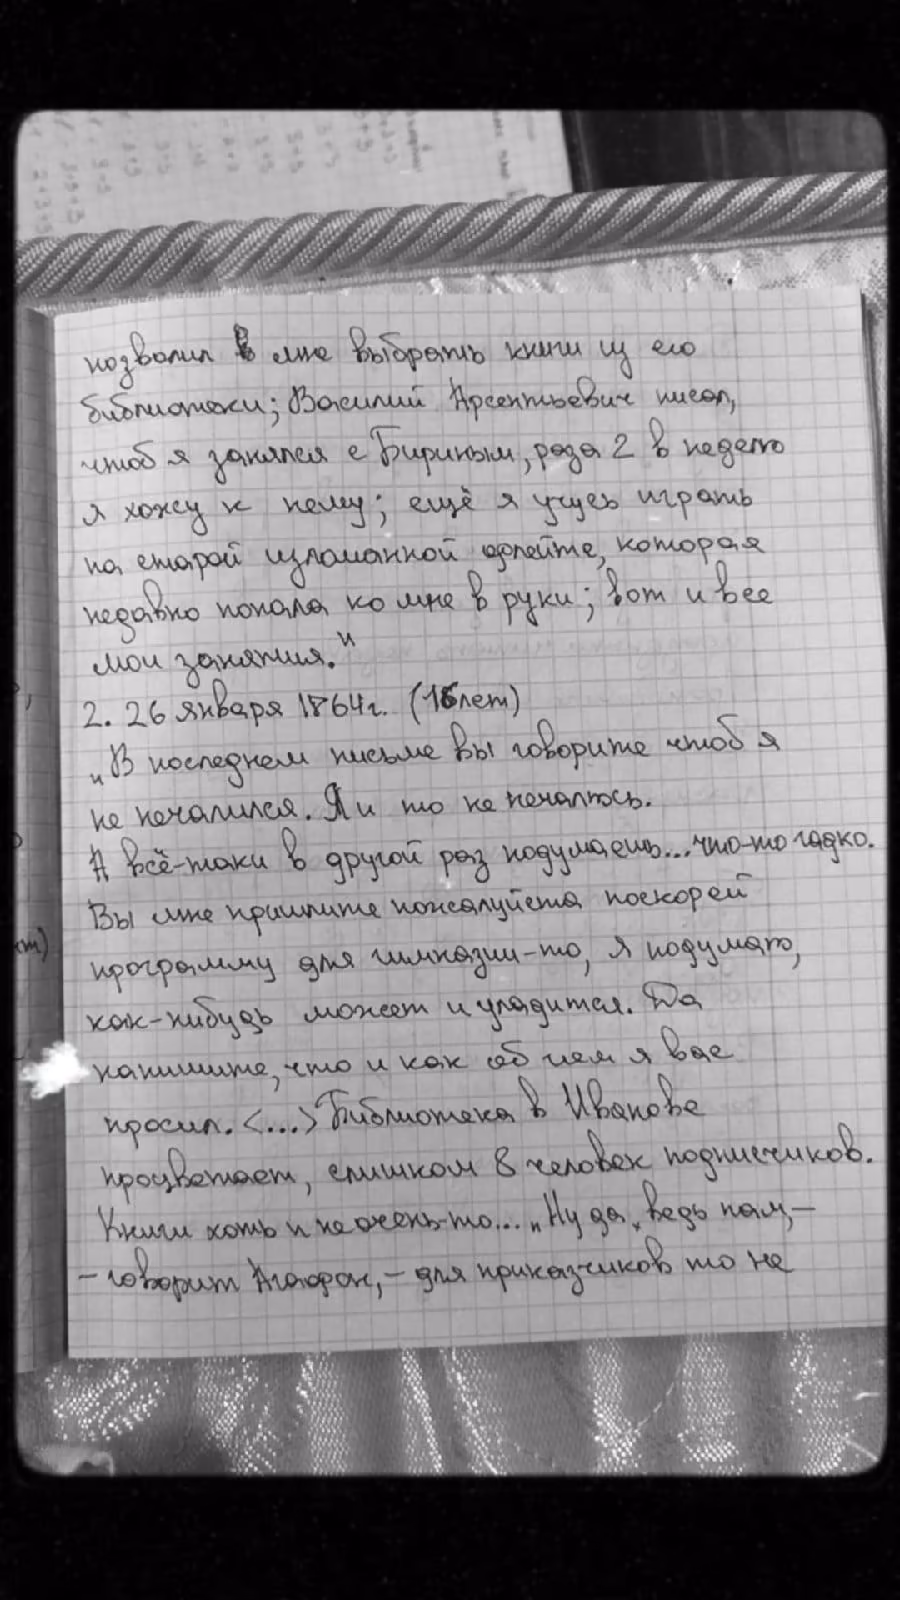 позволил мне выбрать книги из его
библиотеки; Василий Арсентьевич писал,
чтоб я занялся с Бириным, раза 2 в неделю
я хожу к нему; ещё я учусь играть
на старой изломанной флейте, которая
недавно попала ко мне в руки; вот и все
мои занятия."
2. 26 января 1864г. (16лет)
„В последнем письме вы говорите чтоб я
не печалился. Я и то не печалюсь.
А всё-таки в другой раз подумаешь... что-то гадко.
Вы мне пришлите пожалуйста поскорей
программу для гимназии-то, я подумаю,
как-нибудь может и уладится. Да
напишите, что и как об чем я вас
просил. <...> Библиотека в Иванове
процветает, слишком 8 человек подписчиков.
Книги хоть и не очень-то... „Ну да, ведь нам,–
– говорит Агафон,– для приказчиков то не